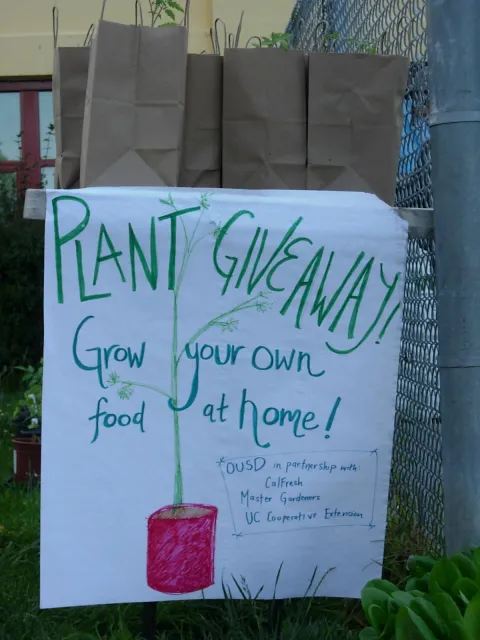 PLANT GIVEAWAY!
Grow your own
food at home!
OUSD in partnership with:
CalFresh
Master Gardeners
UC Cooperative Extension